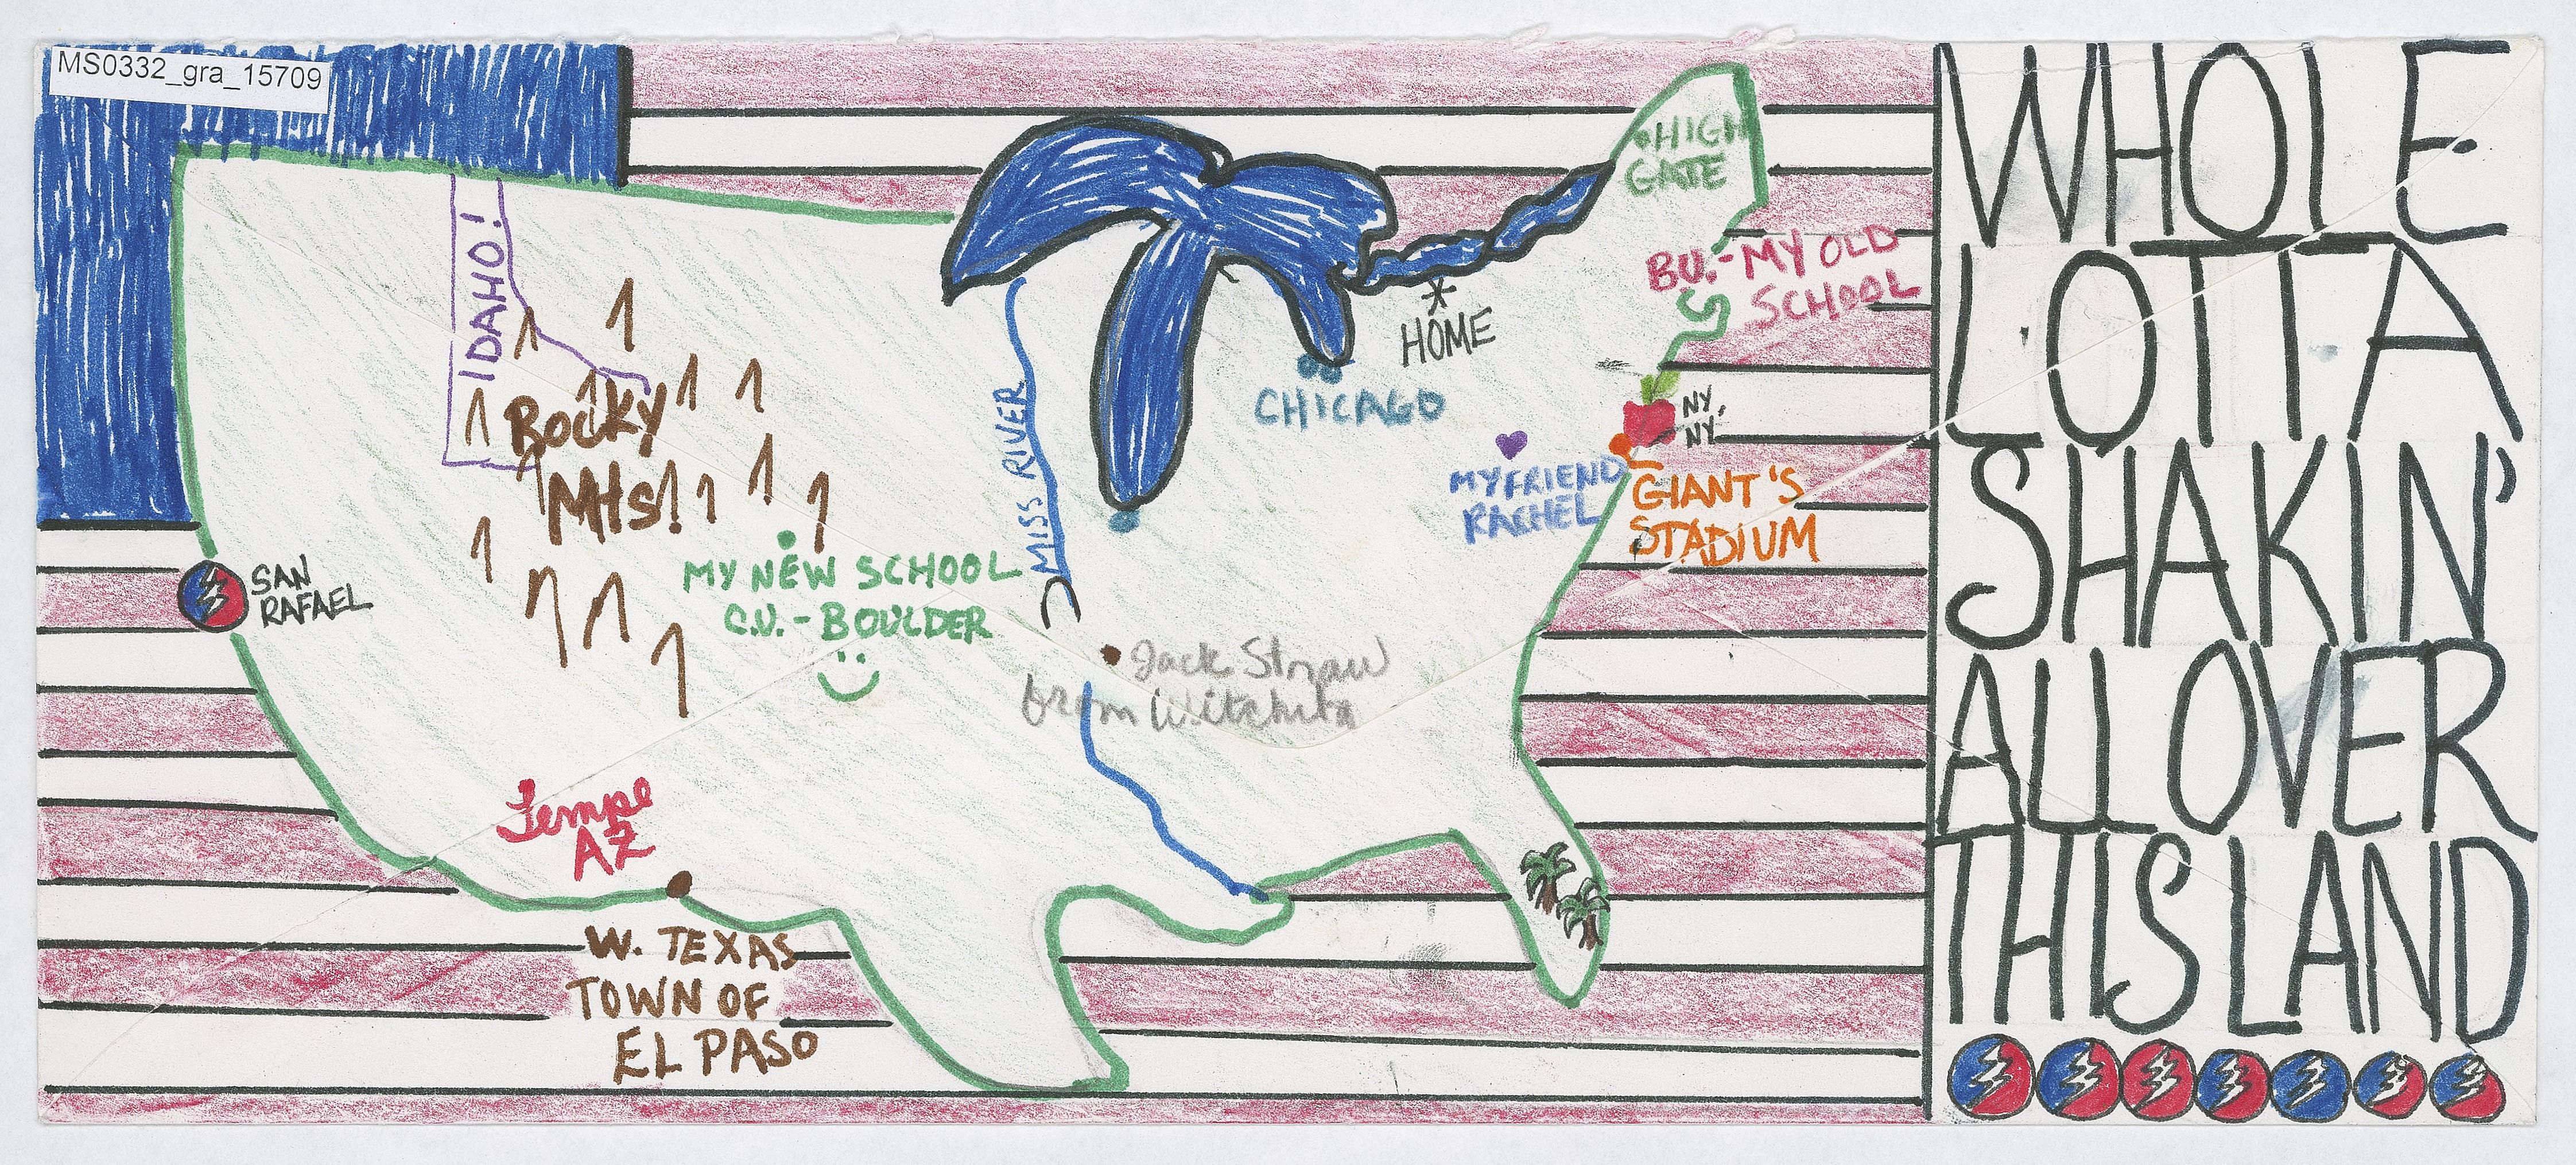 MS0332_gra_15709
WHOLE
LOTTA
SHAKIN'
ALL OVER
THIS LAND
HIGH
GATE
IDAHO!
B.U. - MY OLD
SCHOOL
HOME
CHICAGO
NY,
NY
ROCKY
Mts!
MISS RIVER
MY FRIEND
RACHEL
GIANT'S
STADIUM
SAN
RAFAEL
MY NEW SCHOOL
C.U. - BOULDER
Jack Straw
from Witchita
Tempe
AZ
W. TEXAS
TOWN OF
EL PASO